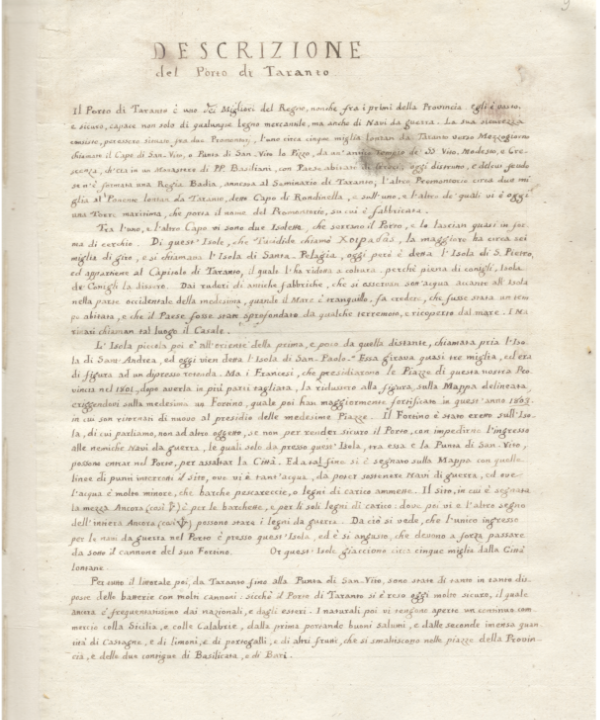 DESCRIZIONE
del Porto di Taranto
Il Porto di Taranto è uno de' Migliori del Regno, nonche fra i primi della Provincia egli è vasto,
e sicuro, capace non solo di qualunque legno mercantile, ma anche di Navi da guerra. La sua sicurezza
consiste, per essere situato fra due Promontorj, l'uno circa cinque miglia lontan da Taranto verso Mezzogiorno
chiamasi il Capo di San-Vito, o Punta di San-Vito lo Pizzo, da un'antico Tempio de' SS Vito, Modesto, e Cre-
scenza, ch'era in un Monastero di PP. Basiliani, con Paese abitato oggi distrutto, e
se n'è formata una Regia Badia, annessa al Seminario di Taranto, l'altro Promontorio circa due mi-
glia al Ponente lontan da Taranto, detto Capo di Rondinella, e sull'uno, e l'altro de' quali vi è oggi
una Torre marittima, che porta il nome del Promontorio, su cui è fabbricata.
Tra l'uno, e l'altro Capo vi sono due Isolette, che serrano il Porto, e lo lascian quasi in for-
ma di cerchio. Di quest'Isole, che Tucidide chiamò Χοιραδας, la maggiore ha circa sei
miglia di giro, e si chiamava l'Isola di Santa-Pelagia, oggi però è detta l'Isola di S. Pietro,
ed appartiene al Capitolo di Taranto, il quale l'ha ridotta a coltura, perchè piena di conigli, Isola
de' Conigli la dissero. Dai ruderi di antiche fabbriche, che si osservan sott'acqua accanto all'Isola
nella parte occidentale della medesima, quando il Mare è tranquillo, fa credere, che fusse stata un tem-
po abitata, e che il Paese fosse stato sprofondato da qualche terremoto, e ricoperto dal mare. I Ma-
rinari chiaman tal luogo il Casale.
L'Isola piccola poi è all'oriente della prima, e poco da quella distante, chiamata pria l'Iso-
la di Sant'Andrea, ed oggi vien detta l'Isola di San-Paolo. Essa girava quasi tre miglia, ed era
di figura ad un dipresso rotonda. Ma i Francesi, che presidiarono le Piazze di questa nostra Pro-
vincia nel 1801, dopo averla in più parti tagliata, la ridussero alla figura, sulla Mappa delineata,
erggendovi sulla medesima un Fortino, quale poi han maggiormente fortificato in quest'anno 1803,
in cui son ritornati di nuovo al presidio delle medesime Piazze. Il Fortino è stato eretto sull'Iso-
la, di cui parliamo, non ad altro oggetto, se non per render sicuro il Porto, con impedirne l'ingresso
alle nemiche Navi da guerra, le quali solo da presso quest'Isola, tra essa e la Punta di San-Vito,
possono entrar nel Porto, per assaltar la Città. Ed a tal fine si è segnato sulla Mappa con quelle
linee di punti interrotti il sito, ove vi è tant'acqua, da poter sostenere Navi di guerra, ed ove
l'acqua è molto minore, che barche pescareccie, o legni di carico ammette. Il sito, in cui è segnata
la mezza Ancora (così) è per le barchette, e per li soli legni di carico: dove poi vi è l'altro segno
dell'intiera Ancora (così) possono stare i legni da guerra. Da ciò si vede, che l'unico ingresso
per le navi da guerra nel Porto è presso quest'Isola, ed è sì angusto, che devono a forza passare
da sotto il cannone del suo Fortino. Or queste Isole giacciono circa cinque miglia dalla Città
lontane.
Per tutto il littorale poi, da Taranto fino alla Punta di San-Vito, sono state di tanto in tanto dis-
poste delle batterie con molti cannoni: sicchè il Porto di Taranto si è reso oggi molto sicuro, il quale
anc'ora è frequentatissimo dai nazionali, e dagli esteri. I naturali poi vi tengono aperto un continuo com-
mercio colla Sicilia, e colle Calabrie, dalla prima portando buoni salumi, e dalle seconde immensa quan-
tità di Castagne, e di limoni, e di portogalli, e di altri frutti, che si smaltiscono nelle piazze della Provin-
cia, e delle due contigue di Basilicata, e di Bari.